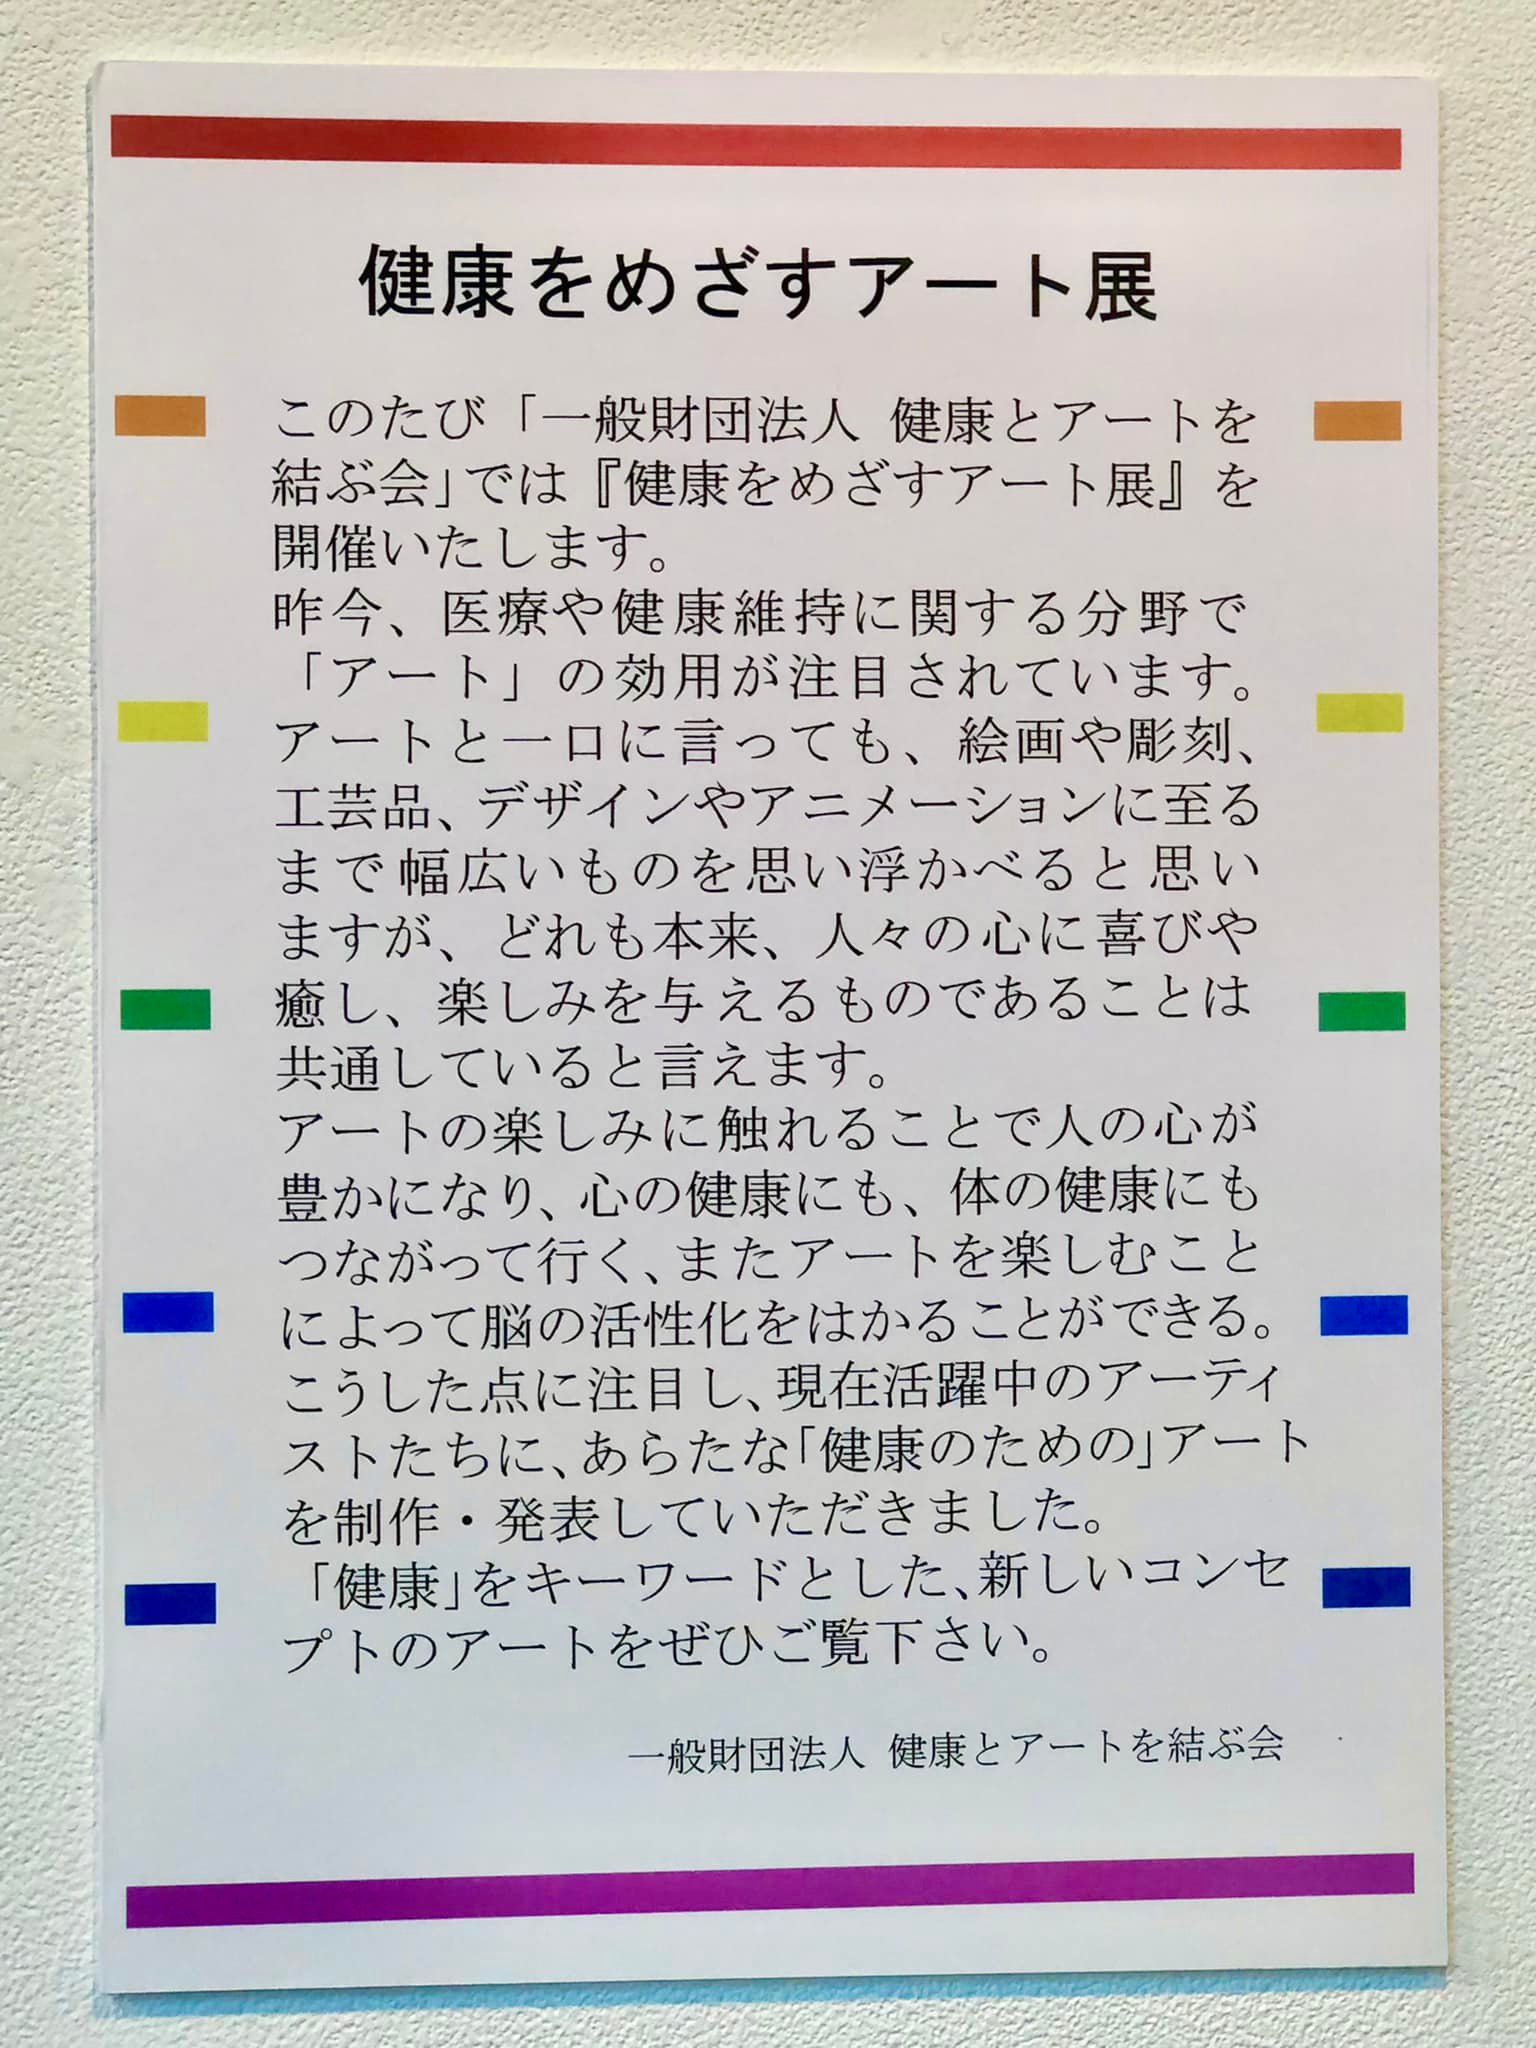 健康をめざすアート展
このたび「一般財団法人 健康とアートを
結ぶ会」では『健康をめざすアート展』を
開催いたします。
昨今、医療や健康維持に関する分野で
「アート」の効用が注目されています。
アートと一口に言っても、絵画や彫刻、
工芸品、デザインやアニメーションに至る
まで幅広いものを思い浮かべると思い
ますが、どれも本来、人々の心に喜びや
癒し、楽しみを与えるものであることは
共通していると言えます。
アートの楽しみに触れることで人の心が
豊かになり、心の健康にも、体の健康にも
つながって行く、またアートを楽しむこと
によって脳の活性化をはかることができる。
こうした点に注目し、現在活躍中のアーティ
ストたちに、あらたな「健康のための」アート
を制作・発表していただきました。
「健康」をキーワードとした、新しいコンセ
プトのアートをぜひご覧下さい。
一般財団法人 健康とアートを結ぶ会